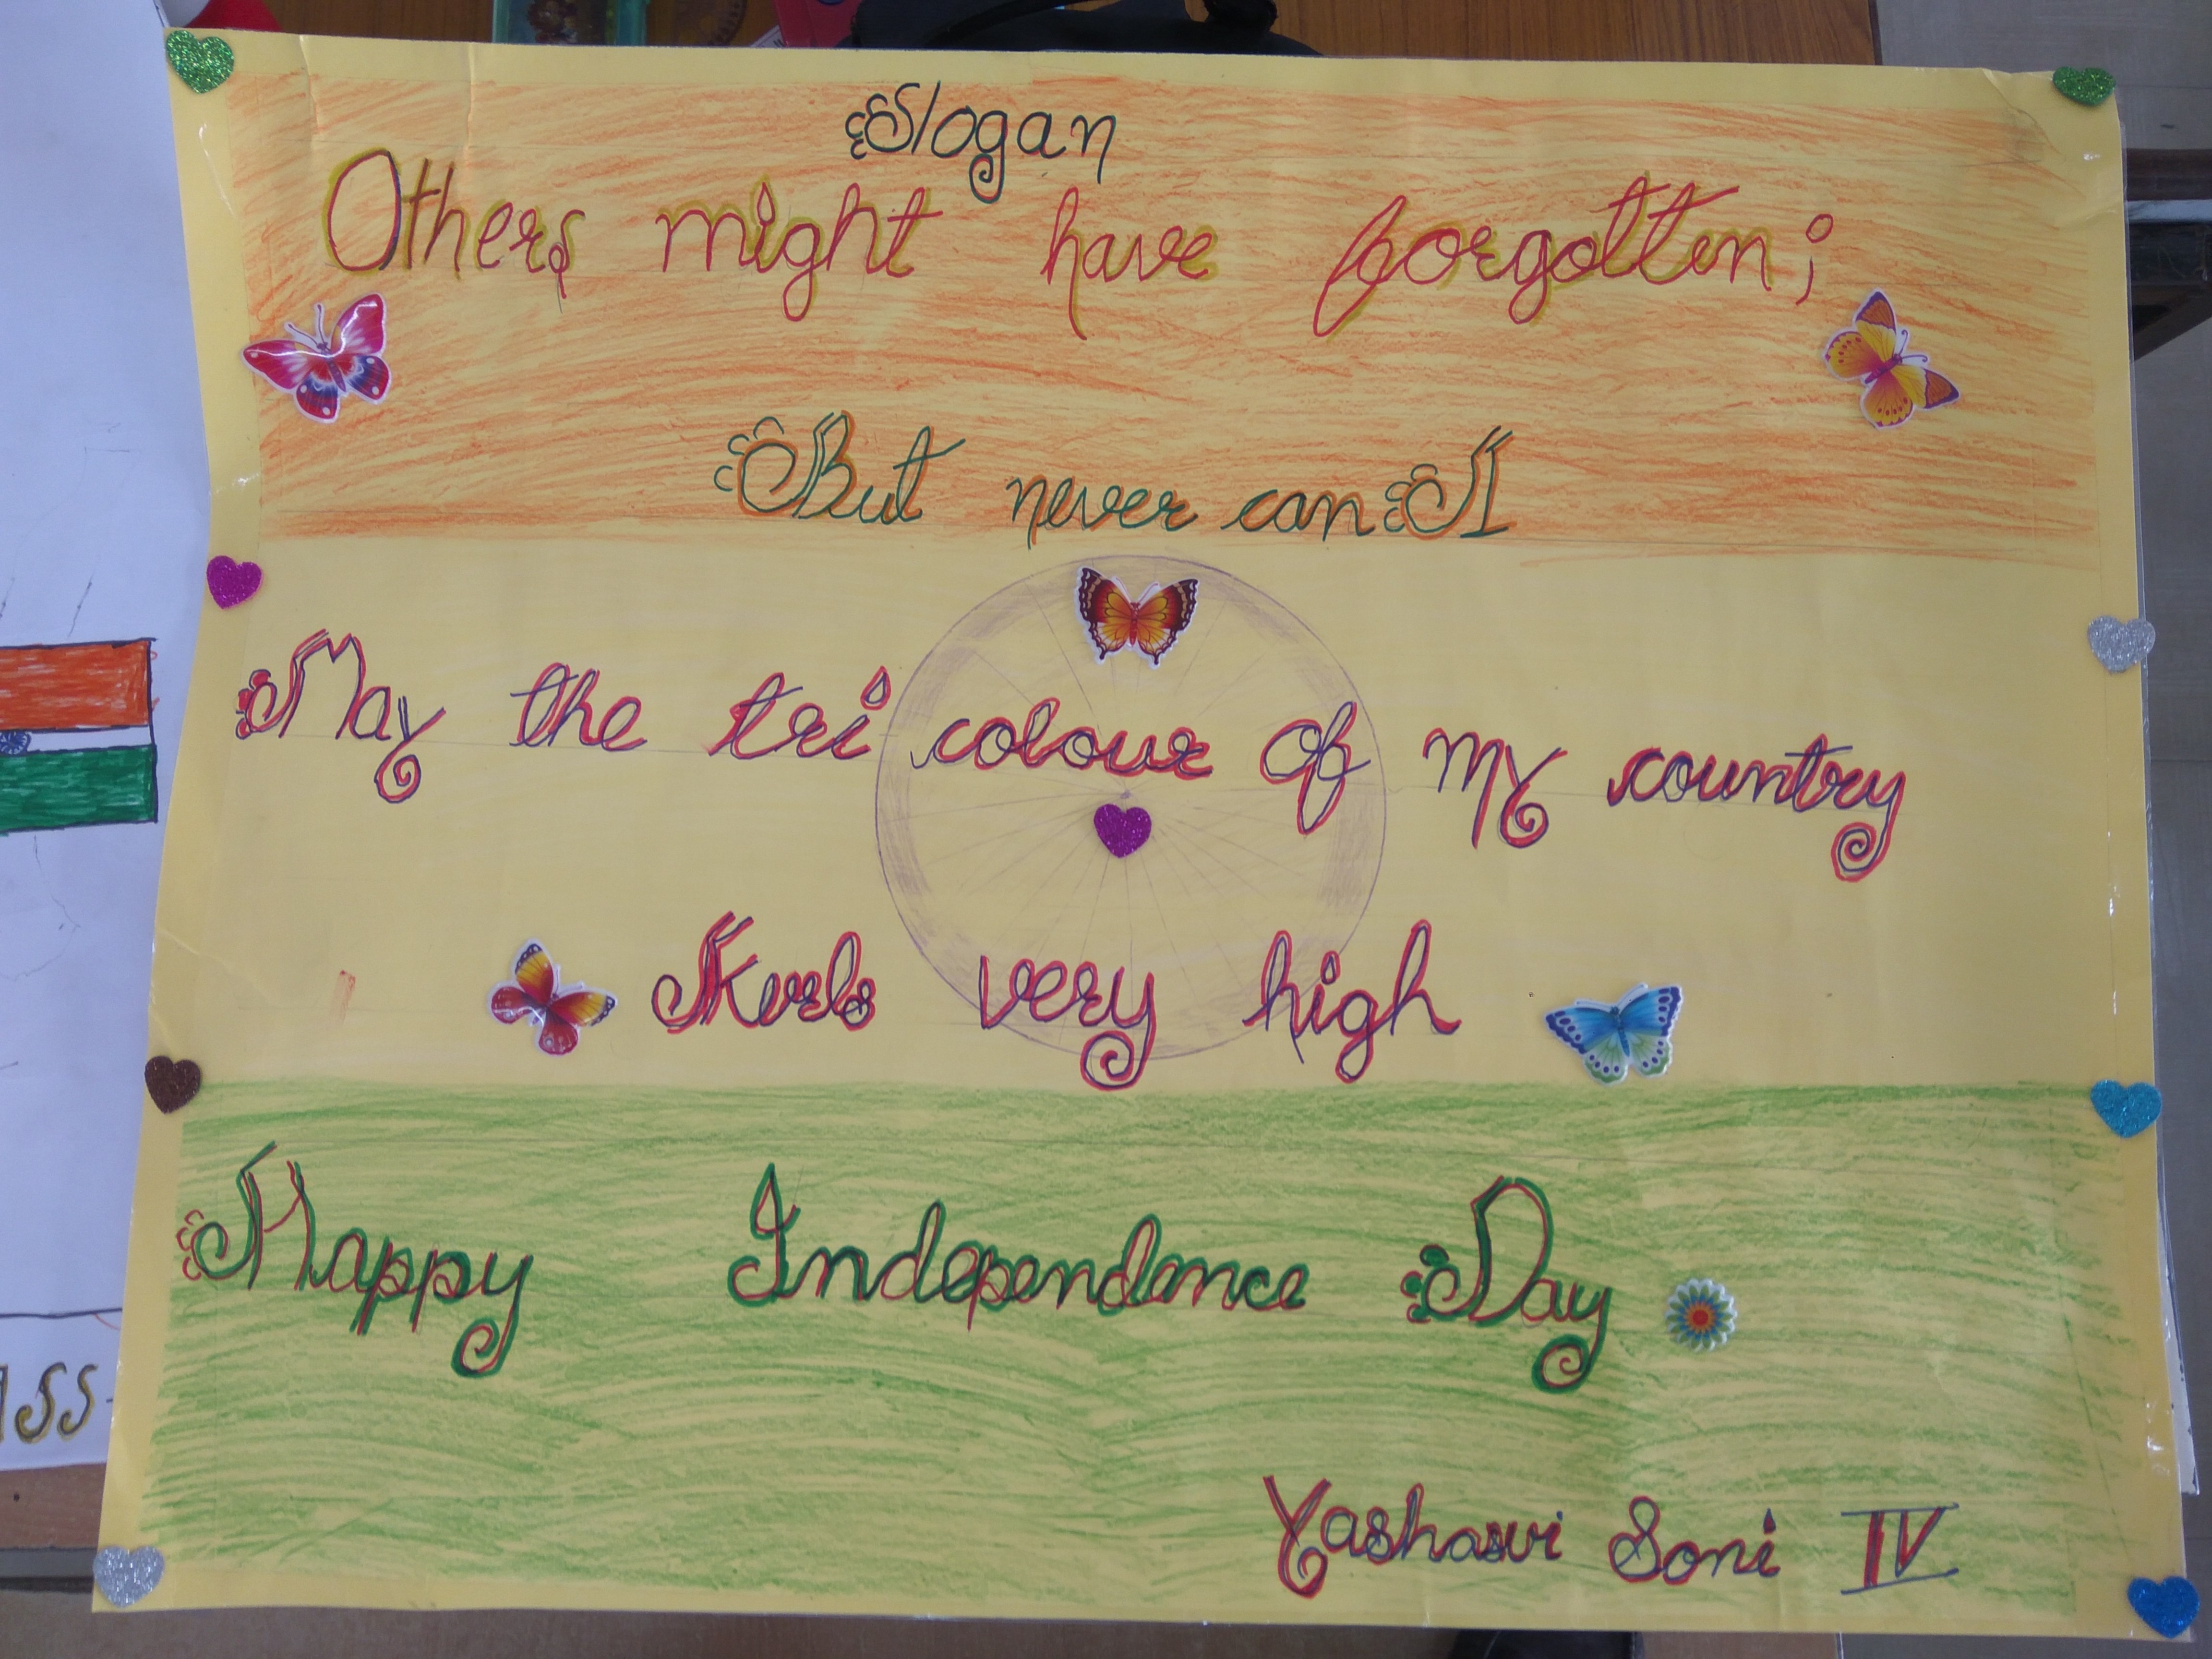 Slogan
Others might have forgotten;
But never can I
May the tri colour of my country
very high
Happy Independence Day
Yashasvi Soni IV
ass-